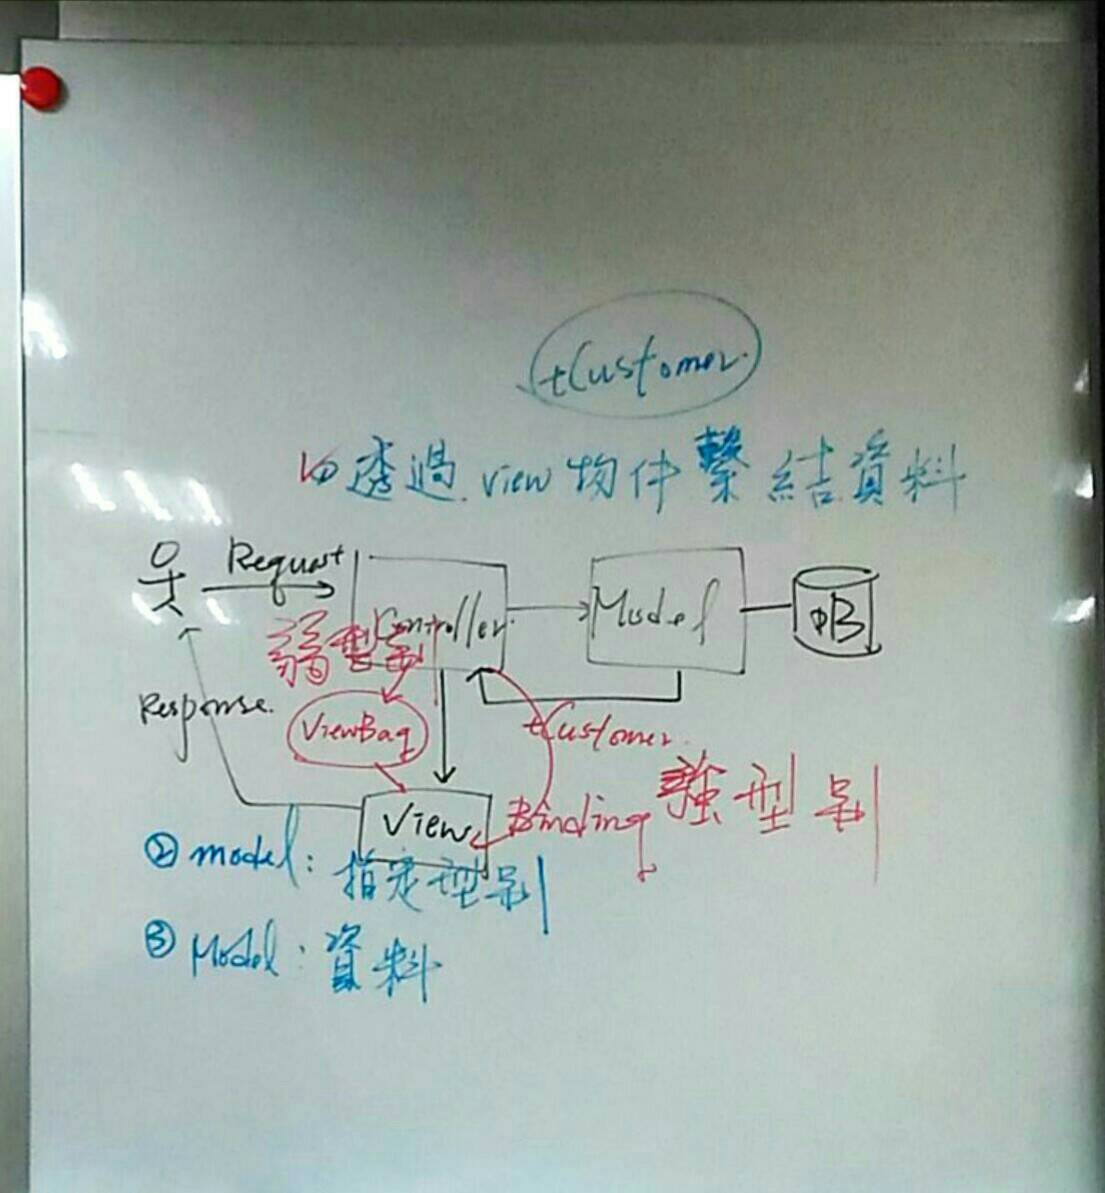 tCustomer.
① 透過 view 物件繫結資料
Request
Controller
Model
DB
弱型別
Response.
ViewBag
tCustomer.
強型別
View
Binding
② model: 指定型別
③ Model: 資料